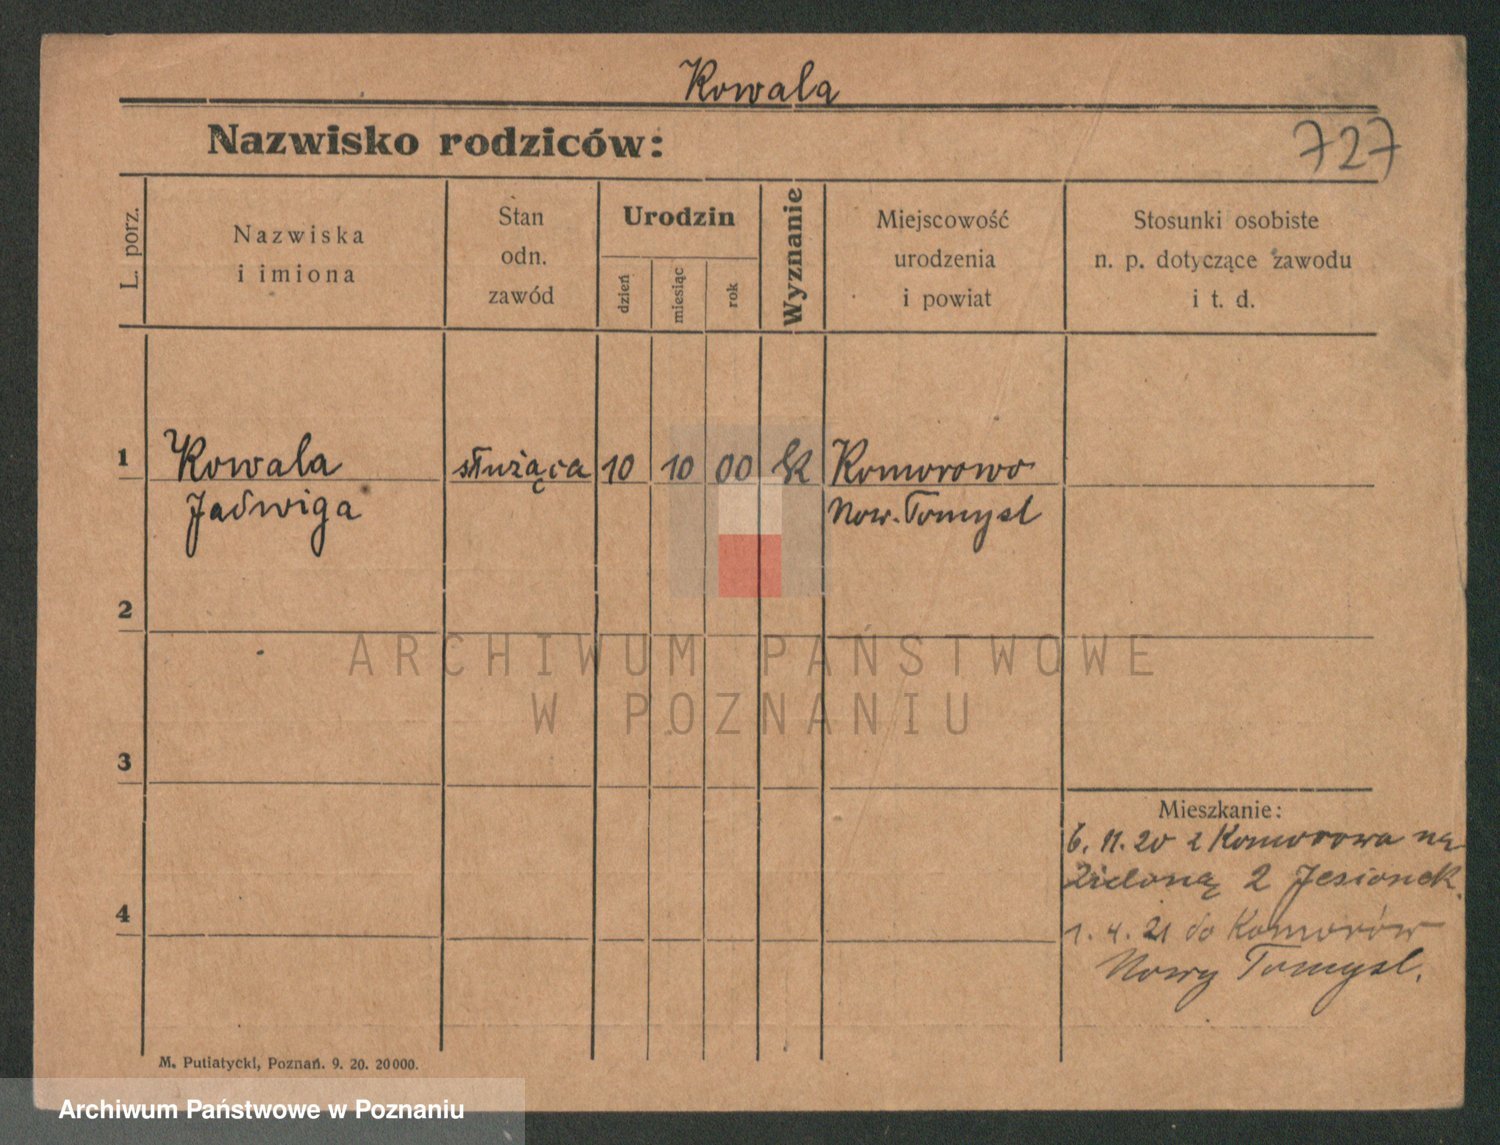 Kowala
Nazwisko rodziców:
727
L. porz.
Nazwiska
i imiona
Stan
odn.
zawód
Urodzin
dzień
miesiąc
rok
Wyznanie
Miejscowość
urodzenia
i powiat
Stosunki osobiste
n. p. dotyczące zawodu
i t. d.
1
Kowala
Jadwiga
służąca
10
10
00
Komorowo
Now. Tomysl
2
3
4
Mieszkanie:
6. 11. 20 z Komorowa na
Zieloną 2 Jesionek.
1. 4. 21 do Komorów
Nowy Tomysl.
ARCHIWUM PAŃSTWOWE
W POZNANIU
M. Putiatycki, Poznań. 9. 20. 20000.
Archiwum Państwowe w Poznaniu